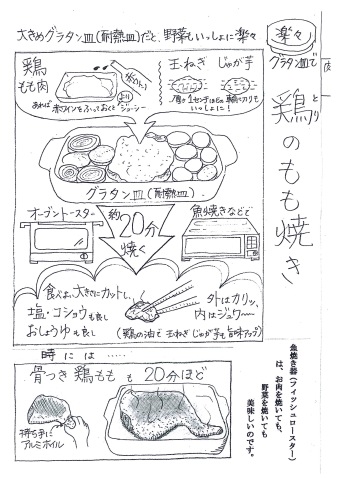 大きめグラタン皿(耐熱皿)だと、野菜もいっしょに楽々
楽々
グラタン皿で
鶏のもも焼き
とり
鶏
もも肉
赤ワイン
あれば 赤ワインをふっておくと
よりジューシー
玉ねぎ じゃが芋
1センチ
いっしょに!
グラタン皿(耐熱皿)
オーブントースター
約20分
焼く
魚焼きなどで
食べよい大きさにカットし、
塩・コショウも良し
おしょうゆも良し
外はカリッ、
内はジュワ〜
(鶏の油で 玉ねぎ じゃが芋も 旨味アップ)
時には……
骨つき 鶏もも も 20分ほど
持ち手に
アルミホイル
魚焼き器(フィッシュロースター)
は、お肉を焼いても、
野菜を焼いても
美味しいのです。